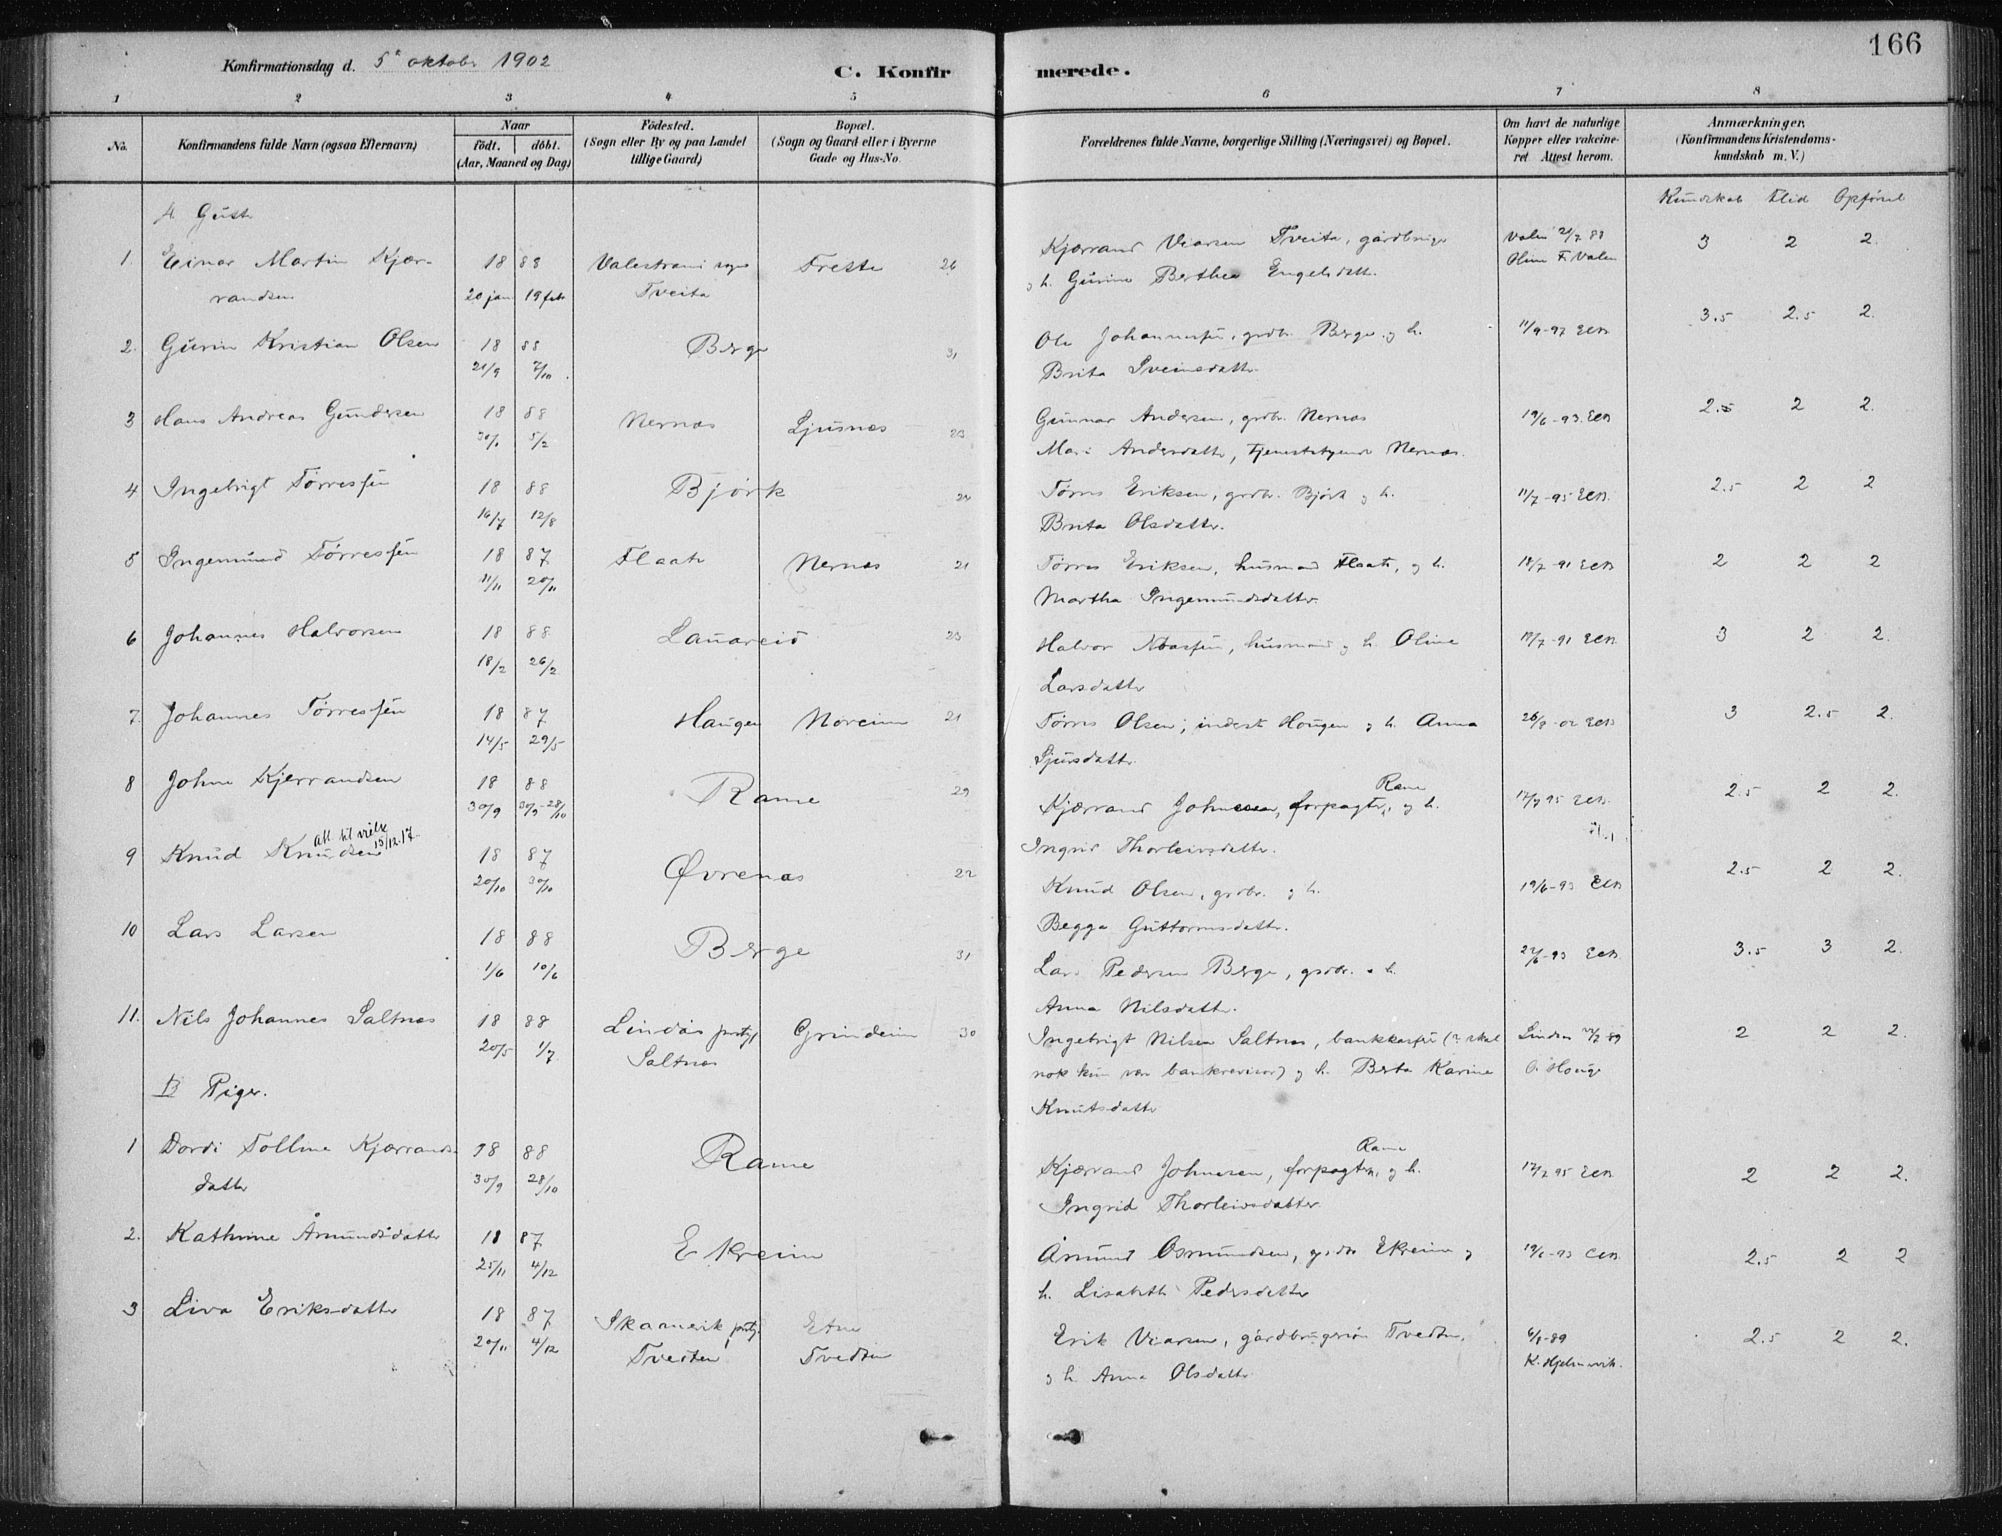 166
Konfirmationsdag d. 5te oktober 1902
C. Konfirmerede.
1 2 3 4 5 6 7 8
No. Konfirmandens fulde Navn (ogsaa Efternavn) Naar født. døbt. (Aar, Maaned og Dag) Födested. (Sogn eller By og paa Landet tillige Gaard) Bopæl. (Sogn og Gaard eller i Byerne Gade og Hus-No. Forældrenes fulde Navne, borgerlige Stilling (Næringsvei) og Bopæl. Om havt de naturlige Kopper eller vakcineret Attest herom. Anmærkninger. (Konfirmandens Kristendomskundskab m. V.)
A. Gutter Kundskab Flid Opførsel
1. Einar Martin Kjær- 18 88 Valestrand sogn Frette 26 Kjærrand Viarsen Tveita, gårdbruger Valen 2/7 89 3 2 2.
randsen 20 jan 19 feb Tveita og h. Gurine Berthea Engelsdatter.
2. Gurin Kristian Olsen 18 88 Berge 31 Ole Johannesen, grdbr. Berge og h. 11/9-97 3.5 2.5 2.
21/9 7/10 Brita Sveinsdatter
3 Hans Andreas Gundersen 18 88 Nernæs Ljusnæs 23 Gunnar Andersen, grdbr. Nernæs 19/6-93 2.5 2 2.
5/2 Mari Andersdatter, tjenestepige Nernæs.
4 Ingebrigt Tørressen 18 88 Bjørk Tørres Eriksen, grdbr. Bjørk og h. 11/7-95 2.5 2 2
16/7 12/8 Brita Olsdatter.
5 Ingemund Tørressen 18 87 Flaate Nernæs 21 Tørres Eriksen, husmand Flaate, og h. 18/7-91 2 2 2
11/11 20/11 Martha Ingemundsdatter
6 Johannes Halvorsen 18 88 Lauareid 23 Halvor husmand og h. Oline 18/7-91 3 2 2.
18/2 26/2 Larsdatter
7. Johannes Tørressen 18 87 Haugen Noreim 21 Tørres Olsen, inderst Haugen og h. Anna 26/8-02 3 2.5 2.
14/5 29/5 Sjursdatter.
8 Johne Kjerrandsen 18 88 Rame 29 Kjærrand Johnesen, forpagter, Rame og h. 17/7 95 2.5 2 2.
30/9 30/9-28/10 Ingrid Thorleivsdatter.
9 Knud Knudsen Att. til vielse 15/12.17. 18 87 Øvrenæs 22 Knud Olsen, grdbr. og h. 19/6-93 2.5 2 2.
20/10 30/10 Begga Guttormsdatter.
10 Lars Larsen 18 88 Berge 31 Lars Pedersen Berge, grdbr. & h. 27/6-93 3.5 3 2.
1/6 10/6 Anna Nilsdatter.
11. Nils Johannes Saltnæs 18 88 Lindås prstgj Grindeim 30 Ingebrigt Nilsen Saltnæs, bankkasserer (? skal Lindås 89 2 2 2.
20/5 1/7 Saltnæs nok kun være bankrevisor) og h. Berta Karine
Knutsdatter
B Piger.
1 Dordi Tolline Kjærrands- 18 88 Rame Kjærrand Johnesen, forpagter, Rame og h. 17/7 95 2 2 2.
datter 30/9 28/10 Ingrid Thorleivsdatter
2. Kathrine Åmundsdatter 18 87 Ekreim Åmund Osmundsen, grdbr Ekreim og 19/6-93 2.5 2 2
25/11 4/12 h. Lisabeth Pedersdatter
3 Liva Eriksdatter 18 87 Skånevik prstgj. Etne Erik Viarsen, gårdbrugersøn Tvedten, 6/8-89 2.5 2 2.
20/11 4/12 Tvedten Tvedten og h. Anna Olsdatter K. Hjelmervik.